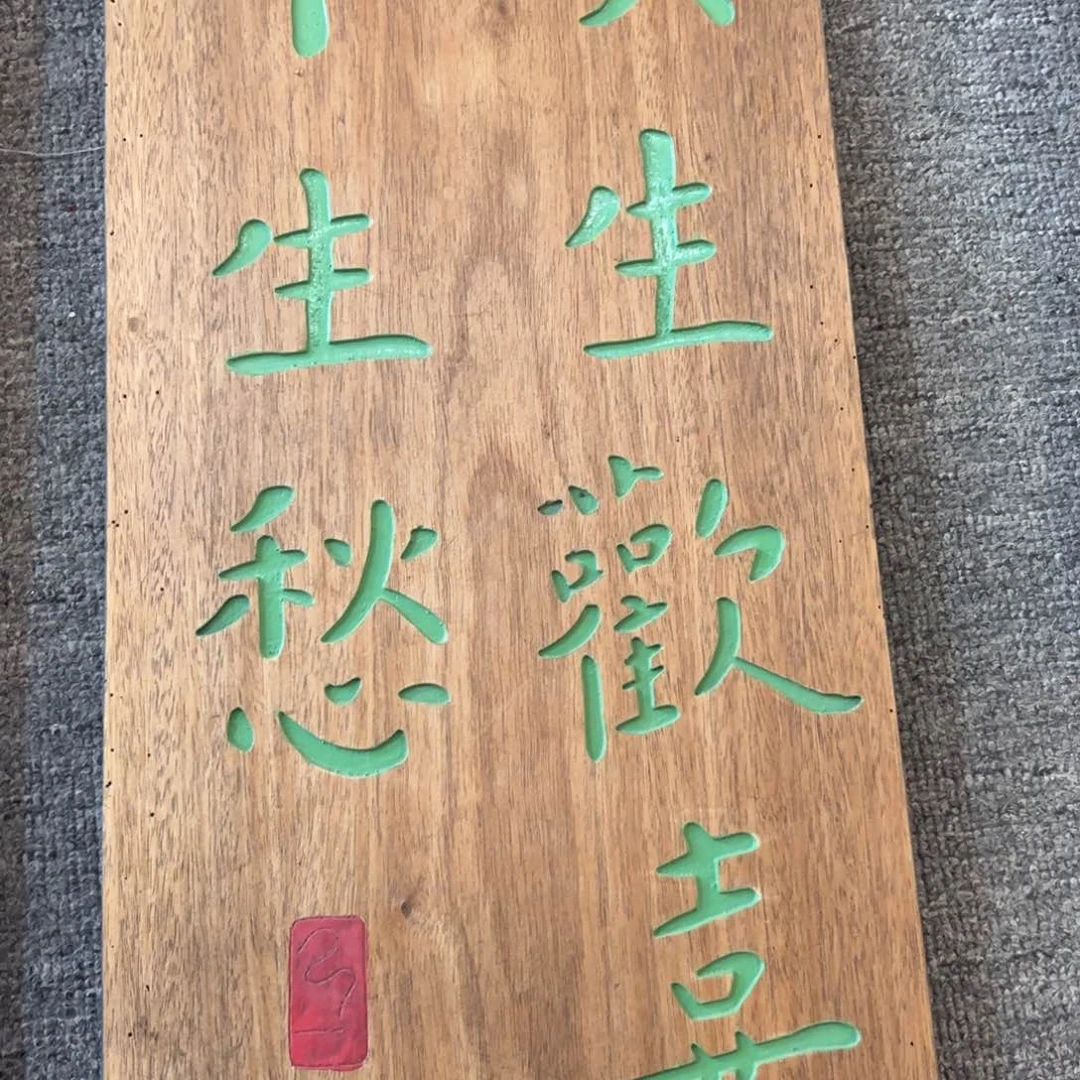 生歡喜
生愁